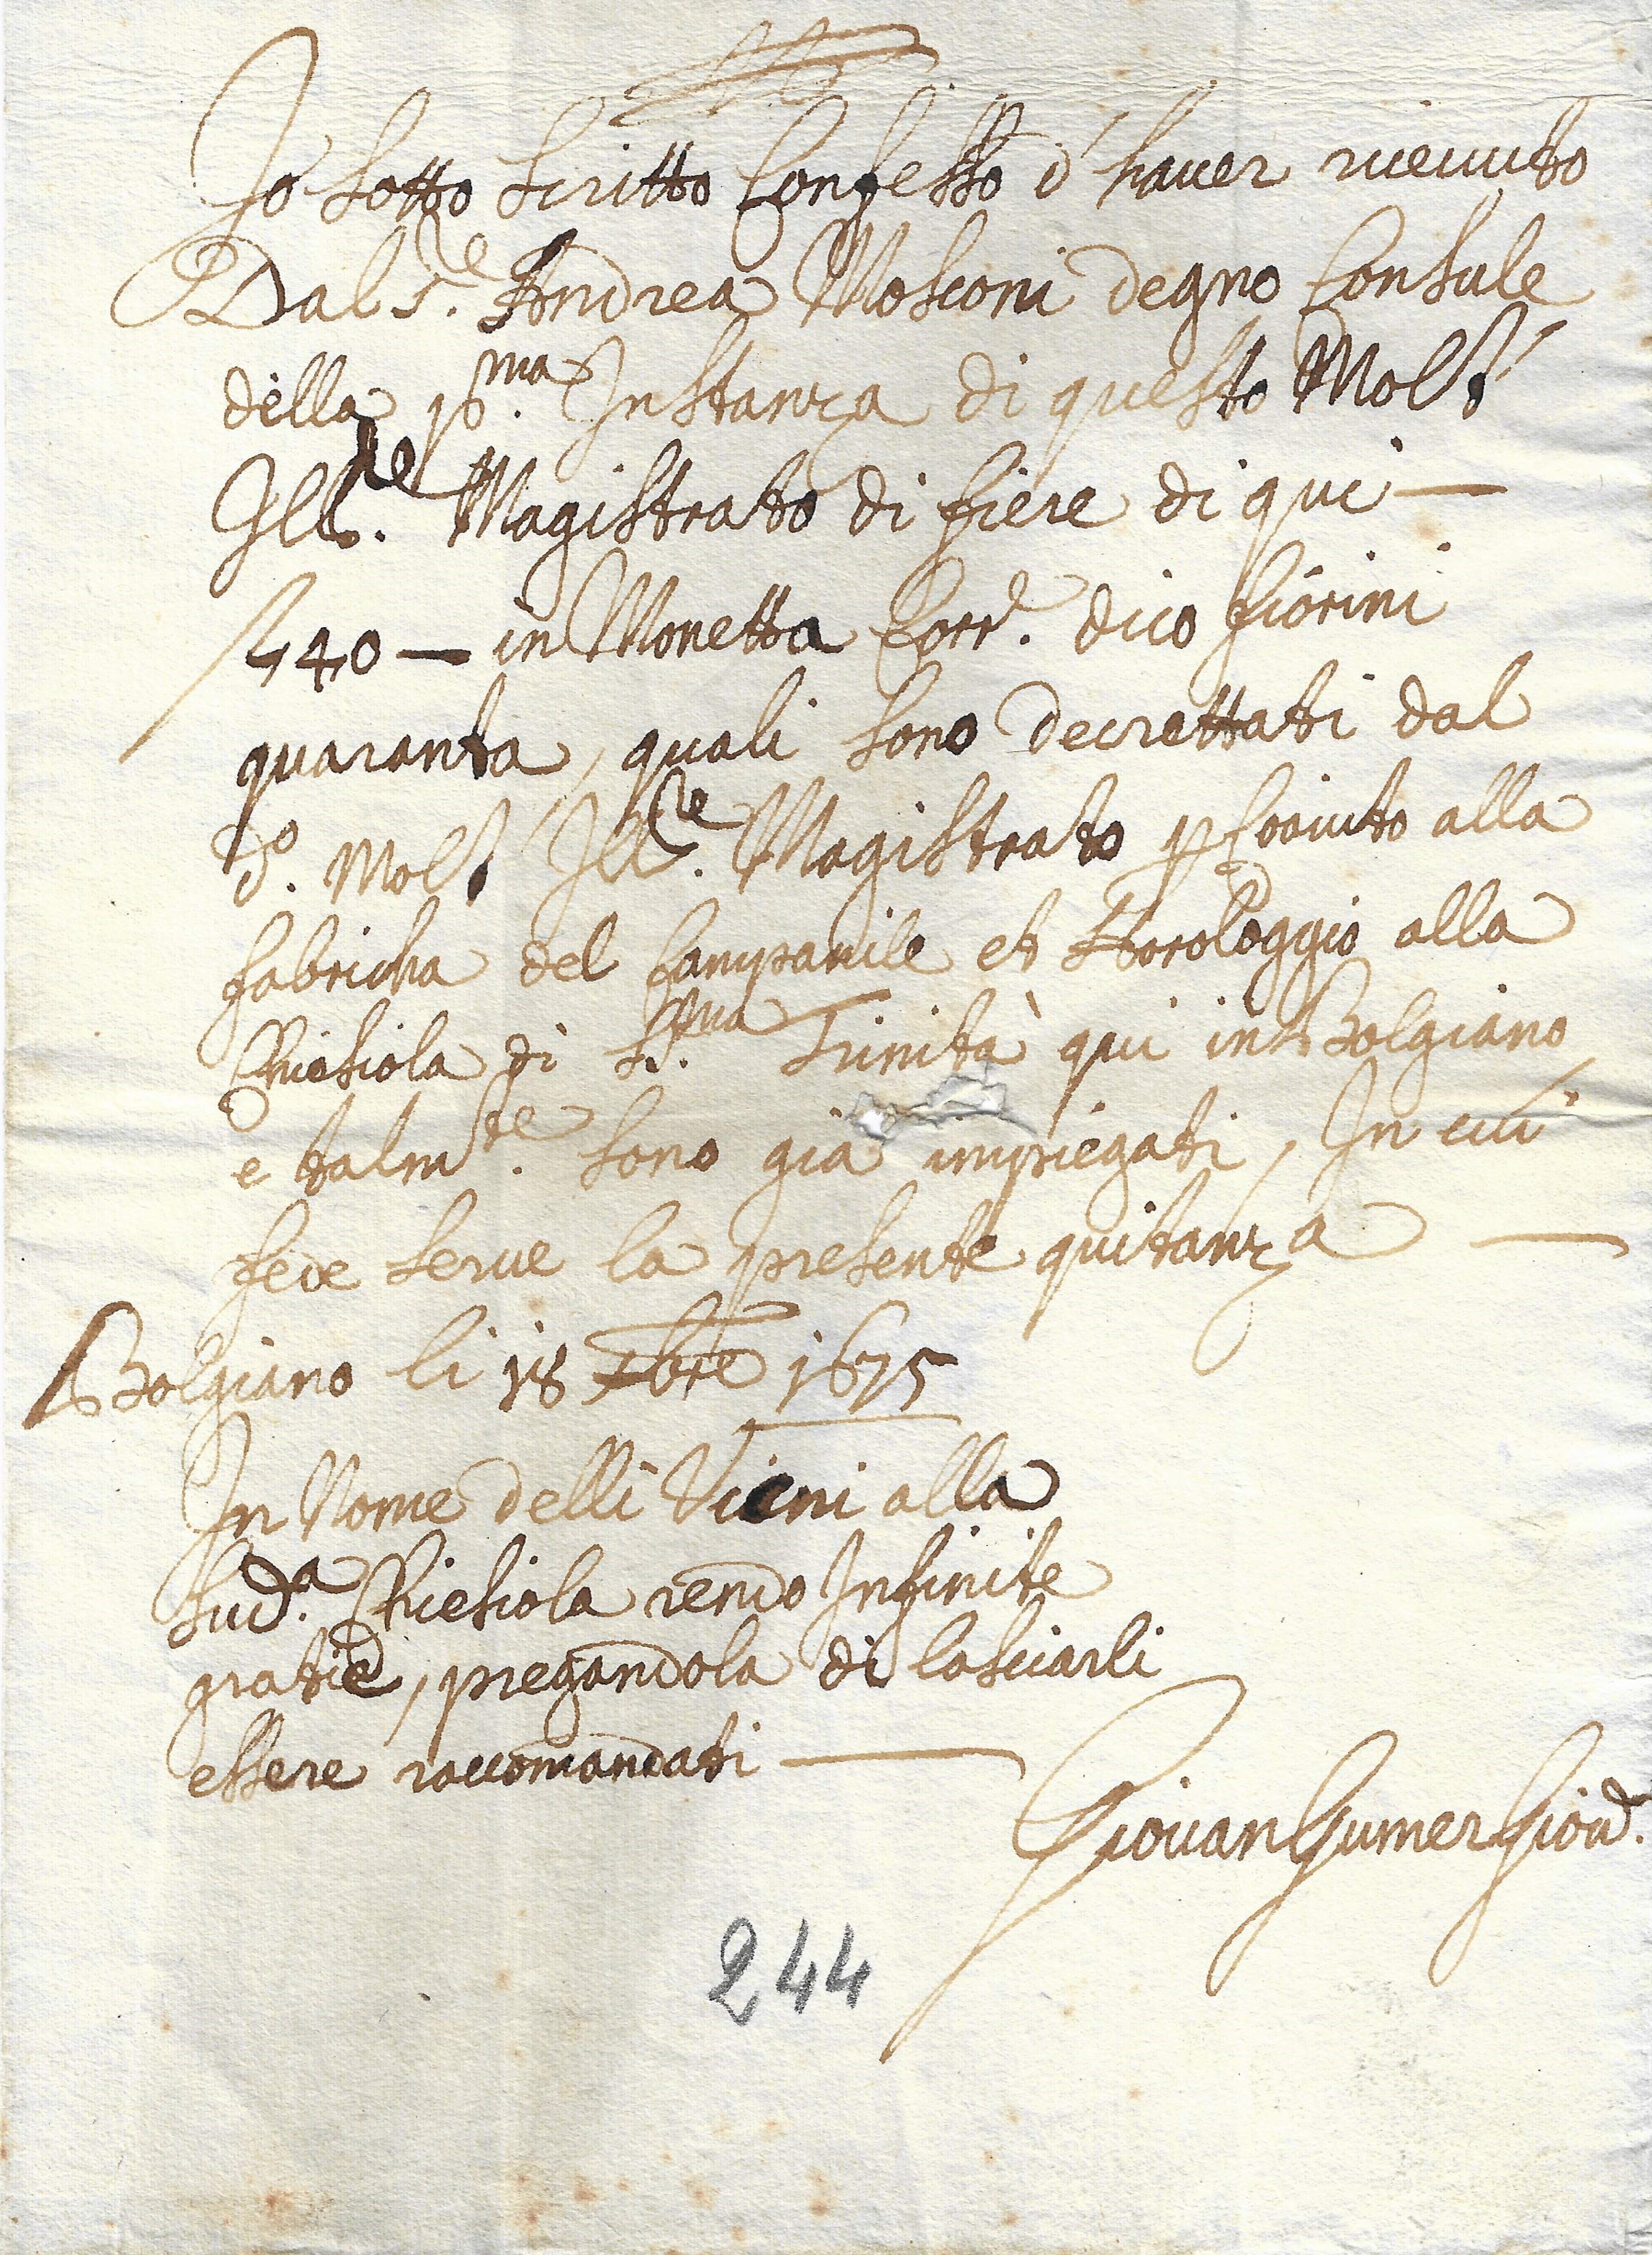 Jo sotto scritto Confesso d'hauer riceuuto
Dal S.re Andrea Mosconi degno Consule
della p.ma Instanza di questo Molt'
Ill.re Magistrato di fiere di qui —
f 40 — in Monetta Corr.e dico fiorini
quaranta, quali sono decrettati dal
d.o Molt' Ill.re Magistrato p aiuto alla
fabricha del Campanile et Horologgio alla
Chiesiola di SS.ma Trinità qui in Bolgiano
e talm.te sono già impiegati, In cui
fede serue la presente quitanza —
Bolgiano li 18 xbre 1675
In Nome delli Vicini alla
Sud.a Chiesiola rendo Infinite
gratie, pregandola di lasciarli
essere raccomandati —
Giouan Gumer
244